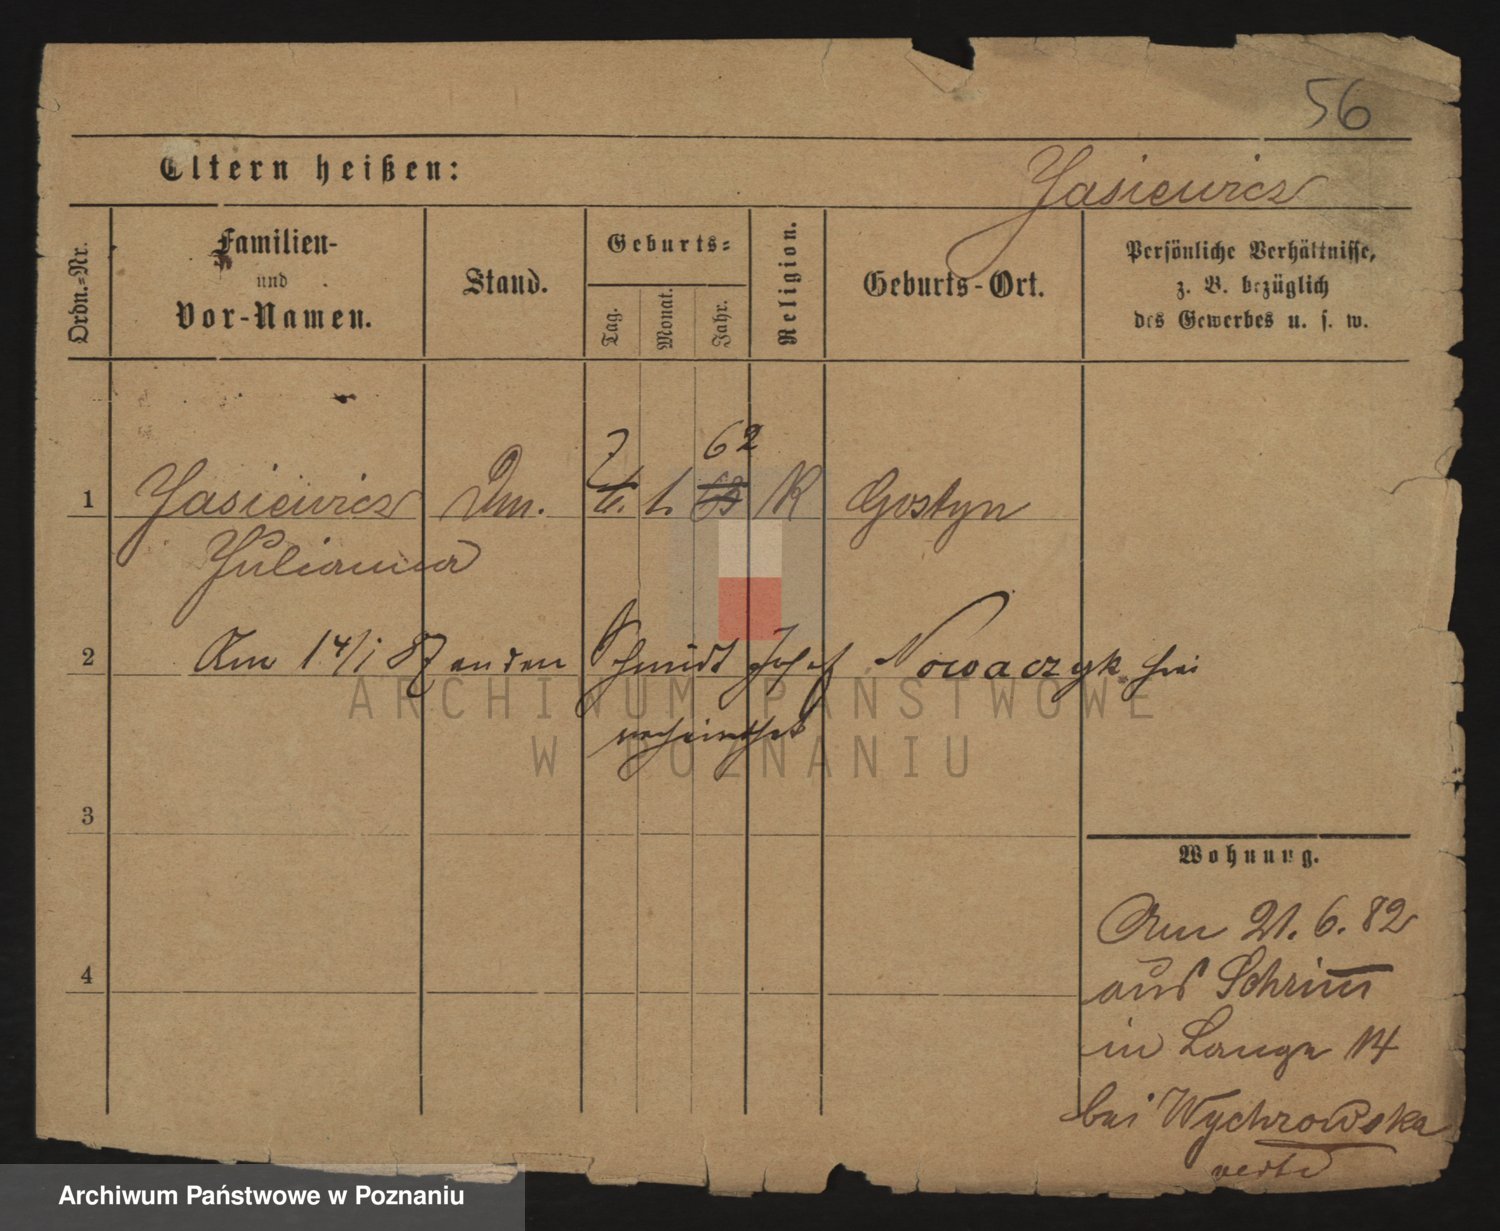 56
Eltern heißen:
Jasiewicz
Ordn.-Nr.
Familien-
und
Vor-Namen.
Stand.
Geburts-
Tag.
Monat.
Jahr.
Religion.
Geburts-Ort.
Persönliche Verhältnisse,
z. B. bezüglich
des Gewerbes u. s. w.
7 62
1 Jasiewicz Dm. 6. 1. 63 K Gostyn
Julianna
2 Am 14/1 87 an den Schmidt Josef Nowaczyk hier
verheirathet
ARCHIWUM PAŃSTWOWE
W POZNANIU
3
4
Wohnung.
Am 21. 6. 82
aus Schrimm
in Lange 14
bei Wychrowska
verte
Archiwum Państwowe w Poznaniu